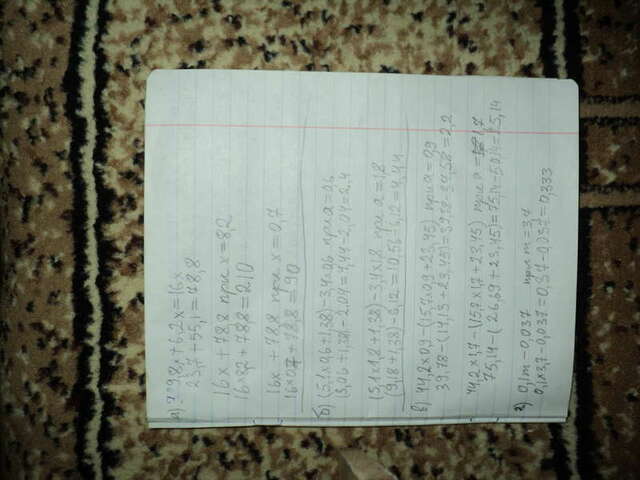 а) 9,8x+6,2x=16x
23,7+55,1=78,8
16x+78,8 при x=8,2
16×8,2+78,8=210
16x+78,8 при x=0,7
16×0,7+78,8=90
б) (5,1×0,6+1,38)-3,4×0,6 при a=0,6
(3,06+1,38)-2,04=4,44-2,04=2,4
(5,1×1,8+1,38)-3,4×1,8 при a=1,8
(9,18+1,38)-6,12=10,56-6,12=4,44
в) 44,2×0,9-(15,7×0,9+23,45) при a=0,9
39,78-(14,13+23,45)=39,78-37,58=2,2
44,2×1,7-(15,7×1,7+23,45) при a=1,7
75,14-(26,69+23,45)=75,14-50,14=25,14
г) 0,1m-0,037 при m=3,7
0,1×3,7-0,037=0,37-0,037=0,333